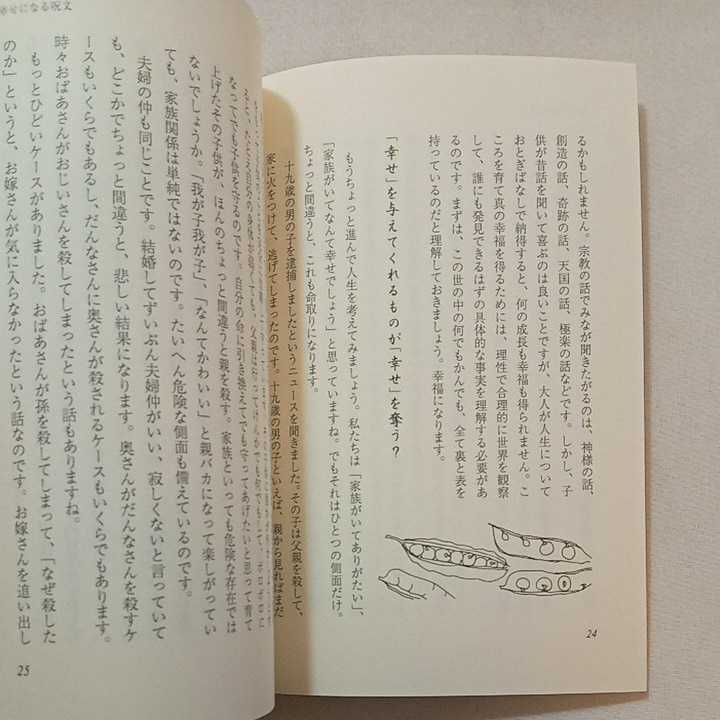 るかもしれません。宗教の話でみなが聞きたがるのは、神様の話、
創造の話、奇跡の話、天国の話、極楽の話などです。しかし、子
供が昔話を聞いて喜ぶのは良いことですが、大人が人生について
おとぎばなしで納得すると、何の成長も幸福も得られません。こ
ころを育て真の幸福を得るためには、理性で合理的に世界を観察
して、誰にも発見できるはずの具体的な事実を理解する必要があ
るのです。まずは、この世の中の何でもかんでも、全て裏と表を
持っているのだと理解しておきましょう。幸福になります。
「幸せ」を与えてくれるものが「幸せ」を奪う?
もうちょっと進んで人生を考えてみましょう。私たちは「家族がいてありがたい」、
「家族がいてなんて幸せでしょう」と思っていますね。でもそれはひとつの側面だけ。
ちょっと間違うと、これも命取りになります。
十九歳の男の子を逮捕しましたというニュースを聞きました。その子は父親を殺して、
家に火をつけて、逃げてしまったのです。十九歳の男の子といえば、親から見ればまだ
24
幸せになる呪文
なってでも子供を守るのです。自分の命に引き換えてでも守ってあげたいと思って育て
上げたその子供が、ほんのちょっと間違うと親を殺す。家族といっても危険な存在では
ないでしょうか。「我が子我が子」、「なんてかわいい」と親バカになって楽しがってい
ても、家族関係は単純ではないのです。たいへん危険な側面も備えているのです。
夫婦の仲も同じことです。結婚してずいぶん夫婦仲がいい、寂しくないと言っていて
も、どこかでちょっと間違うと、悲しい結果になります。奥さんがだんなさんを殺すケ
ースもいくらでもあるし、だんなさんに奥さんが殺されるケースもいくらでもあります。
時々おばあさんがおじいさんを殺してしまったという話もありますね。
もっとひどいケースがありました。おばあさんが孫を殺してしまって、「なぜ殺した
のか」というと、お嫁さんが気に入らなかったという話なのです。お嫁さんを追い出し
25